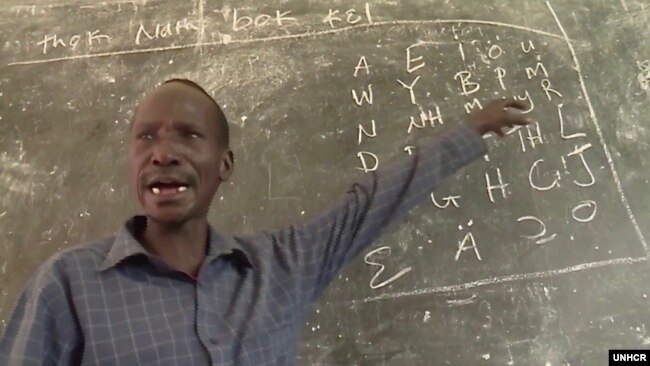 thok Nath bok kɛl
A E I O U
W Y B P M
N NH M Y R
D TH L
G H G J
Ɛ Ä Ɔ O
UNHCR